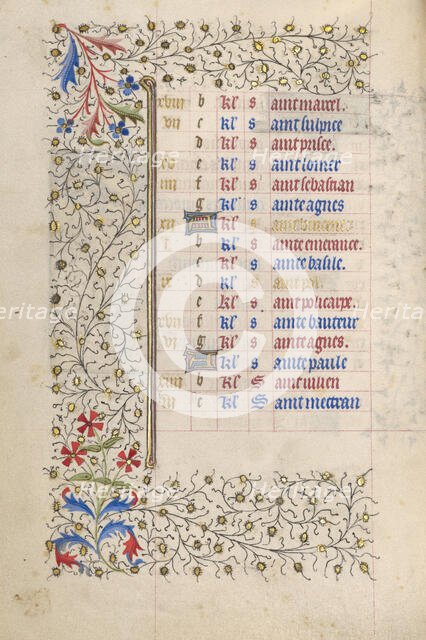 xviii b kl s aint marcel.
vii c kl s aint sulpice
d kl s aint prisce.
xv e kl s aint lomer
iiii f kl s aint sebastian
g kl s ainte agnes
xii kl s aint vincent
i b kl s ainte emerance.
c kl s ainte basile.
ix d kl s aint pol.
e kl s aint policarpe.
xvii f kl s ainte bauteur
vi g kl s ainte agnes.
kl s ainte paule
xiiii b kl S aint iulien
iii c kl S aint mectran
Heritage
Heritage
Heritage
Heritage
Heritage
Heritage